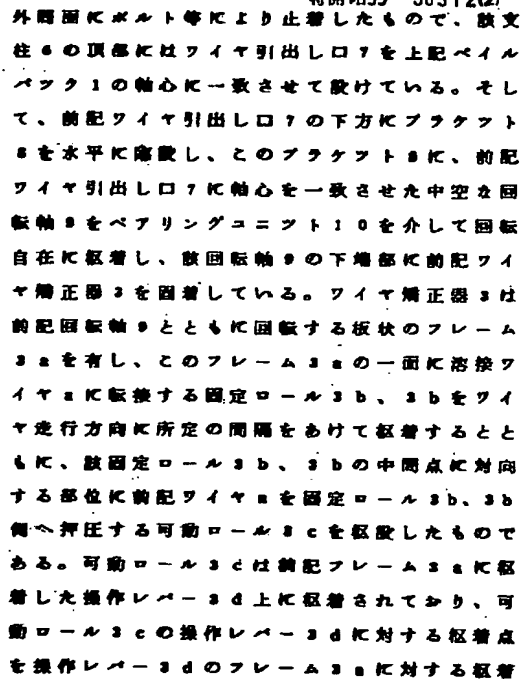 特開昭55- 50312(2)
外周面にボルト等により止着したもので、該支
柱6の頂部にはワイヤ引出し口7を上記ペイル
パック1の軸心に一致させて設けている。そし
て、前記ワイヤ引出し口7の下方にブラケット
8を水平に突設し、このブラケット8に、前記
ワイヤ引出し口7に軸心を一致させた中空な回
転軸9をベアリングユニット10を介して回転
自在に枢着し、該回転軸9の下端部に前記ワイ
ヤ矯正器3を固着している。ワイヤ矯正器3は
前記回転軸9とともに回転する板状のフレーム
3aを有し、このフレーム3aの一面に溶接ワ
イヤaに転接する固定ロール3b、3bをワイ
ヤ走行方向に所定の間隔をあけて枢着するとと
もに、該固定ロール3b、3bの中間点に対向
する部位に前記ワイヤaを固定ロール3b、3b
側へ押圧する可動ロール3cを枢設したもので
ある。可動ロール3cは前記フレーム3aに枢
着した操作レバー3d上に枢着されており、可
動ロール3cの操作レバー3dに対する枢着点
を操作レバー3dのフレーム3aに対する枢着